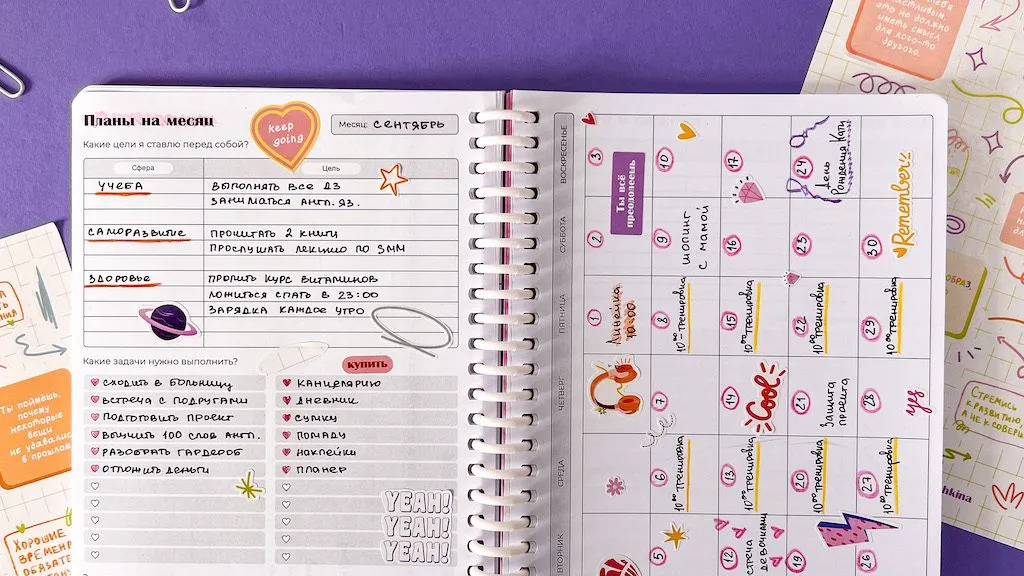 Планы на месяц
keep
going
Месяц: СЕНТЯБРЬ
Какие цели я ставлю перед собой?
Сфера
Цель
УЧЕБА
ВЫПОЛНЯТЬ ВСЕ ДЗ
ЗАНИМАТЬСЯ АНГЛ. ЯЗ.
САМОРАЗВИТИЕ
ПРОЧИТАТЬ 2 КНИГИ
ПРОСЛУШАТЬ ЛЕКЦИЮ ПО ЗММ
ЗДОРОВЬЕ
ПРОПИТЬ КУРС ВИТАМИНОВ
ЛОЖИТЬСЯ СПАТЬ В 23:00
ЗАРЯДКА КАЖДОЕ УТРО
Какие задачи нужно выполнить?
КУПИТЬ
СХОДИТЬ В БОЛЬНИЦУ
ВСТРЕЧА С ПОДРУГАМИ
ПОДГОТОВИТЬ ПРОЕКТ
ВЫУЧИТЬ 100 СЛОВ АНГЛ.
РАЗОБРАТЬ ГАРДЕРОБ
ОТЛОЖИТЬ ДЕНЬГИ
КАНЦЕЛЯРИЮ
ДНЕВНИК
СУМКУ
ПОМАДУ
НАКЛЕЙКИ
ПЛАНЕР
YEAH!
YEAH!
YEAH!
ВОСКРЕСЕНЬЕ
3
Ты всё
преодолеешь
10
17
24
День
Рождения Кати
Remember
СУББОТА
2
9
шопинг
с мамой
16
23
30
ПЯТНИЦА
1
Линейка
10:00
8
10:00 тренировка
15
10:00 тренировка
22
10:00 тренировка
29
10:00 тренировка
ЧЕТВЕРГ
7
14
Cool
21
Защита
проекта
28
yes
СРЕДА
6
10:00 тренировка
13
10:00 тренировка
20
10:00 тренировка
27
10:00 тренировка
ВТОРНИК
5
12
девочками
19
26
это не должно
иметь смысл
для кого-то
другого
Ты поймёшь,
почему
некоторые
вещи
не удавались
в прошлом
ХОРОШИЕ
СТРЕМИСЬ
К РАЗВИТИЮ
hkina